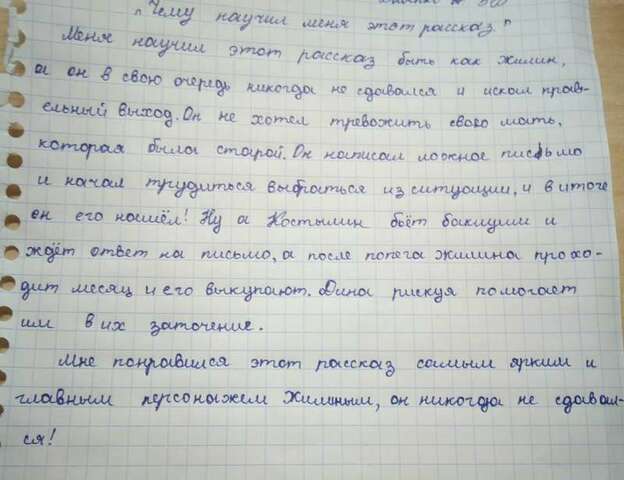 "Чему научил меня этот рассказ."
Меня научил этот рассказ быть как Жилин,
а он в свою очередь никогда не сдавался и искал прав-
ельный выход. Он не хотел тревожить свою мать,
которая была старой. Он написал ложное письмо
и начал трудиться выбраться из ситуации, и в итоге
он его нашёл! Ну а Костылин бьёт баклуши и
ждёт ответ на письмо, а после попега Жилина прохо-
дит месяц и его выкупают. Дина рискуя помогает
им в их заточение.
Мне понравился этот рассказ самым ярким и
главным персонажем Жилиным, он никогда не сдавал-
ся!